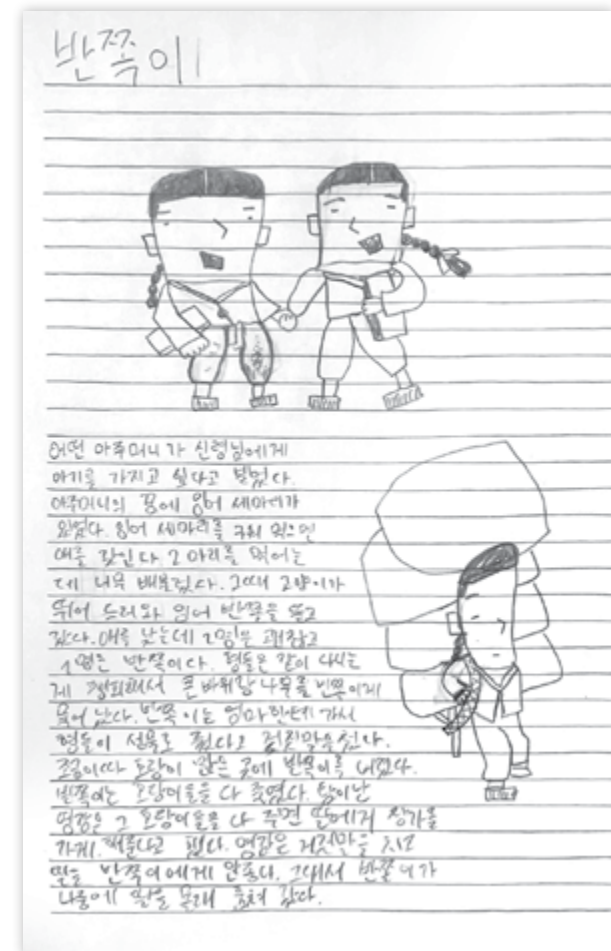 반쪽이
어떤 아주머니가 신령님에게
아기를 가지고 싶다고 빌었다.
아주머니의 꿈에 잉어 세마리가
나왔다. 잉어 세마리를 구워 먹으면
애를 갖인다. 2마리를 먹어는
데 너무 배불렀다. 그때 고양이가
뛰어 드러와 잉어 반쪽을 물고
갔다. 애를 낳는데 2명은 괜찮고
1명은 반쪽이다. 형들은 같이 다니는
게 창피해서 큰 바위랑 나무를 반쪽이에게
묶어 놨다. 반쪽이는 엄마한테 가서
형들이 선물로 줬다고 거짓말을 쳤다.
호랑이 많은 곳에 반쪽이를 버렸다.
반쪽이는 호랑이들을 다 죽였다. 탐이난
영감은 그 호랑이들을 다 주면 딸에게 장가를
가게 해준다고 했다. 영감은 거짓말을 치고
딸을 반쪽이에게 안줬다. 그래서 반쪽이가
나중에 딸을 몰래 훔쳐 갔다.